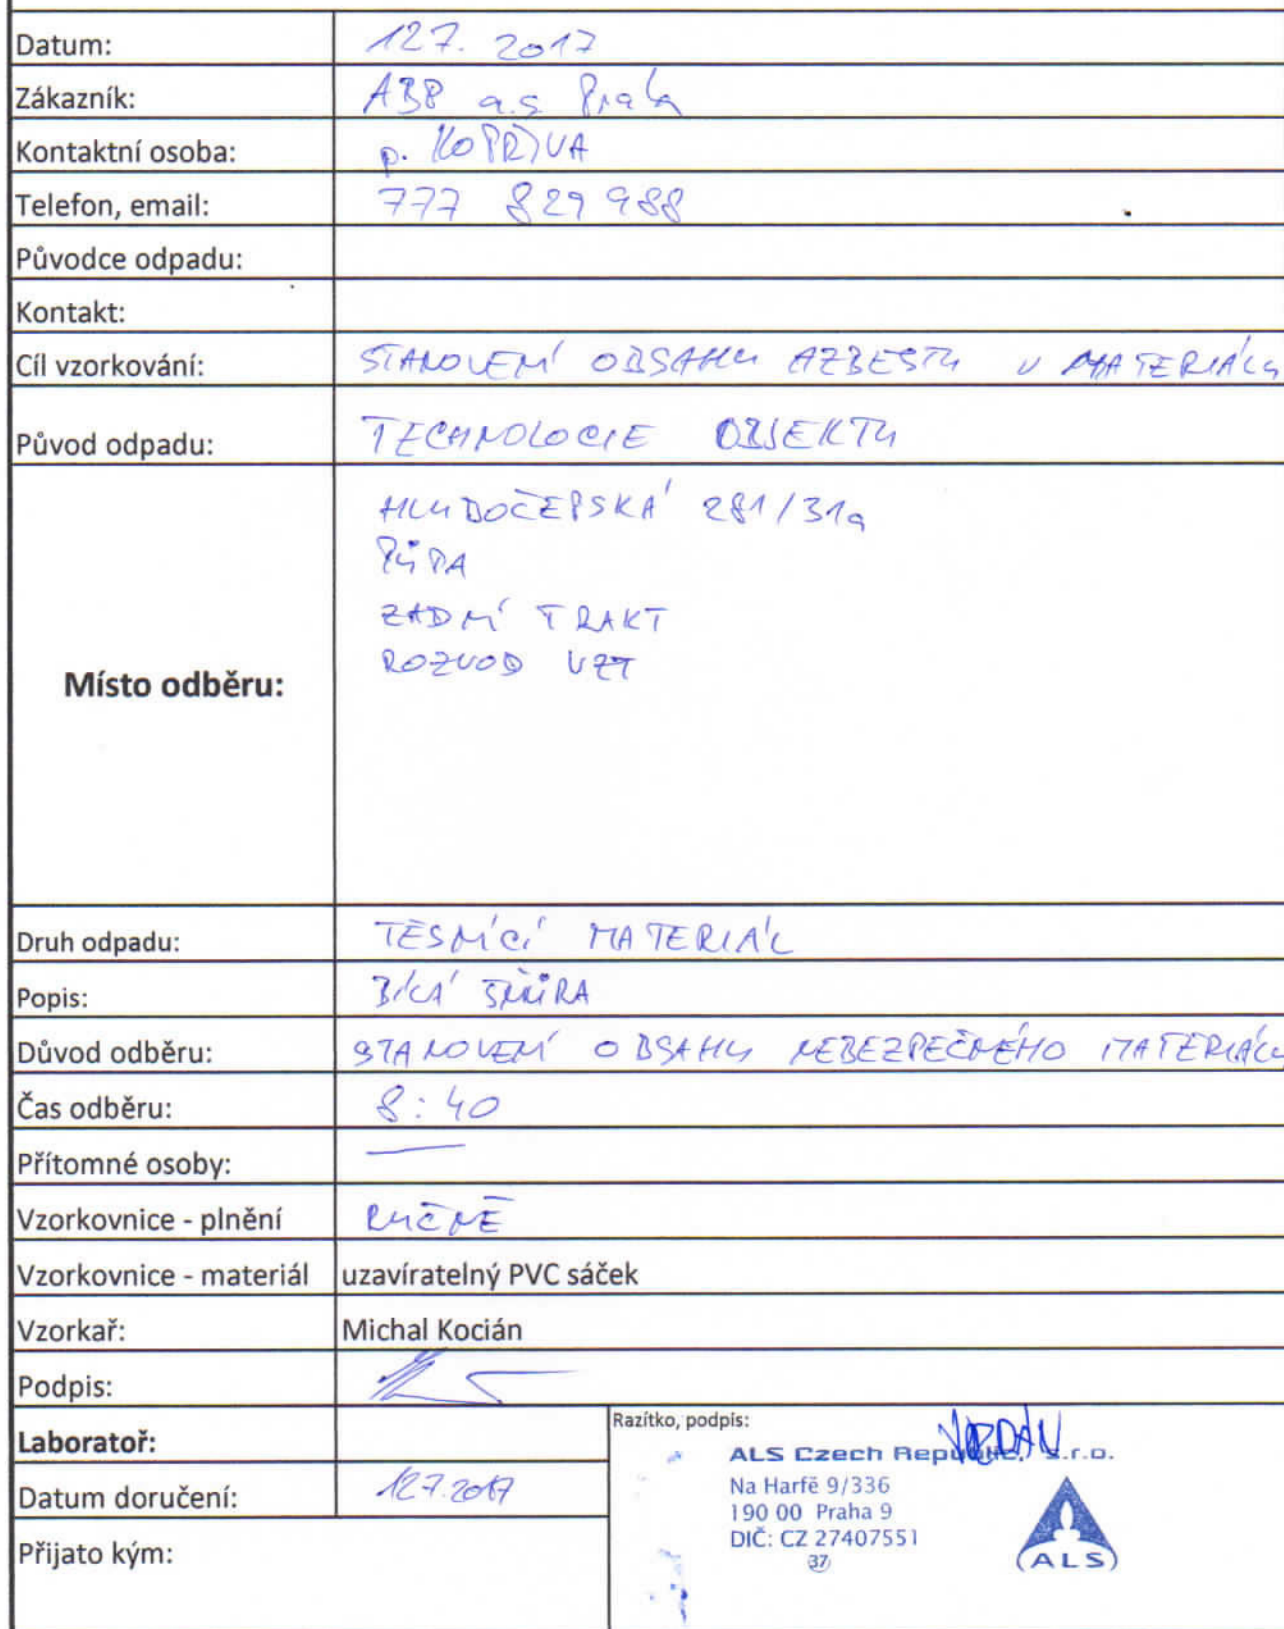 Datum: 12.7. 2017
Zákazník: ABP a.s. Praha
Kontaktní osoba: p. KOPŘIVA
Telefon, email: 777 829 988
Původce odpadu:
Kontakt:
Cíl vzorkování: STANOVENÍ OBSAHU AZBESTU V MATERIÁLU
Původ odpadu: TECHNOLOGIE OBJEKTU
Místo odběru:
HLUBOČEPSKÁ 281/31a
PŮDA
ZADNÍ TRAKT
ROZVOD VZT
Druh odpadu: TĚSNÍCÍ MATERIÁL
Popis: BÍLÁ ŠŇŮRA
Důvod odběru: STANOVENÍ OBSAHU NEBEZPEČNÉHO MATERIÁLU
Čas odběru: 8:40
Přítomné osoby: —
Vzorkovnice - plnění RUČNĚ
Vzorkovnice - materiál uzavíratelný PVC sáček
Vzorkař: Michal Kocián
Podpis:
Laboratoř:
Datum doručení: 12.7.2017
Přijato kým:
Razítko, podpis:
ALS Czech Republic, s.r.o.
Na Harfě 9/336
190 00 Praha 9
DIČ: CZ 27407551
37
ALS